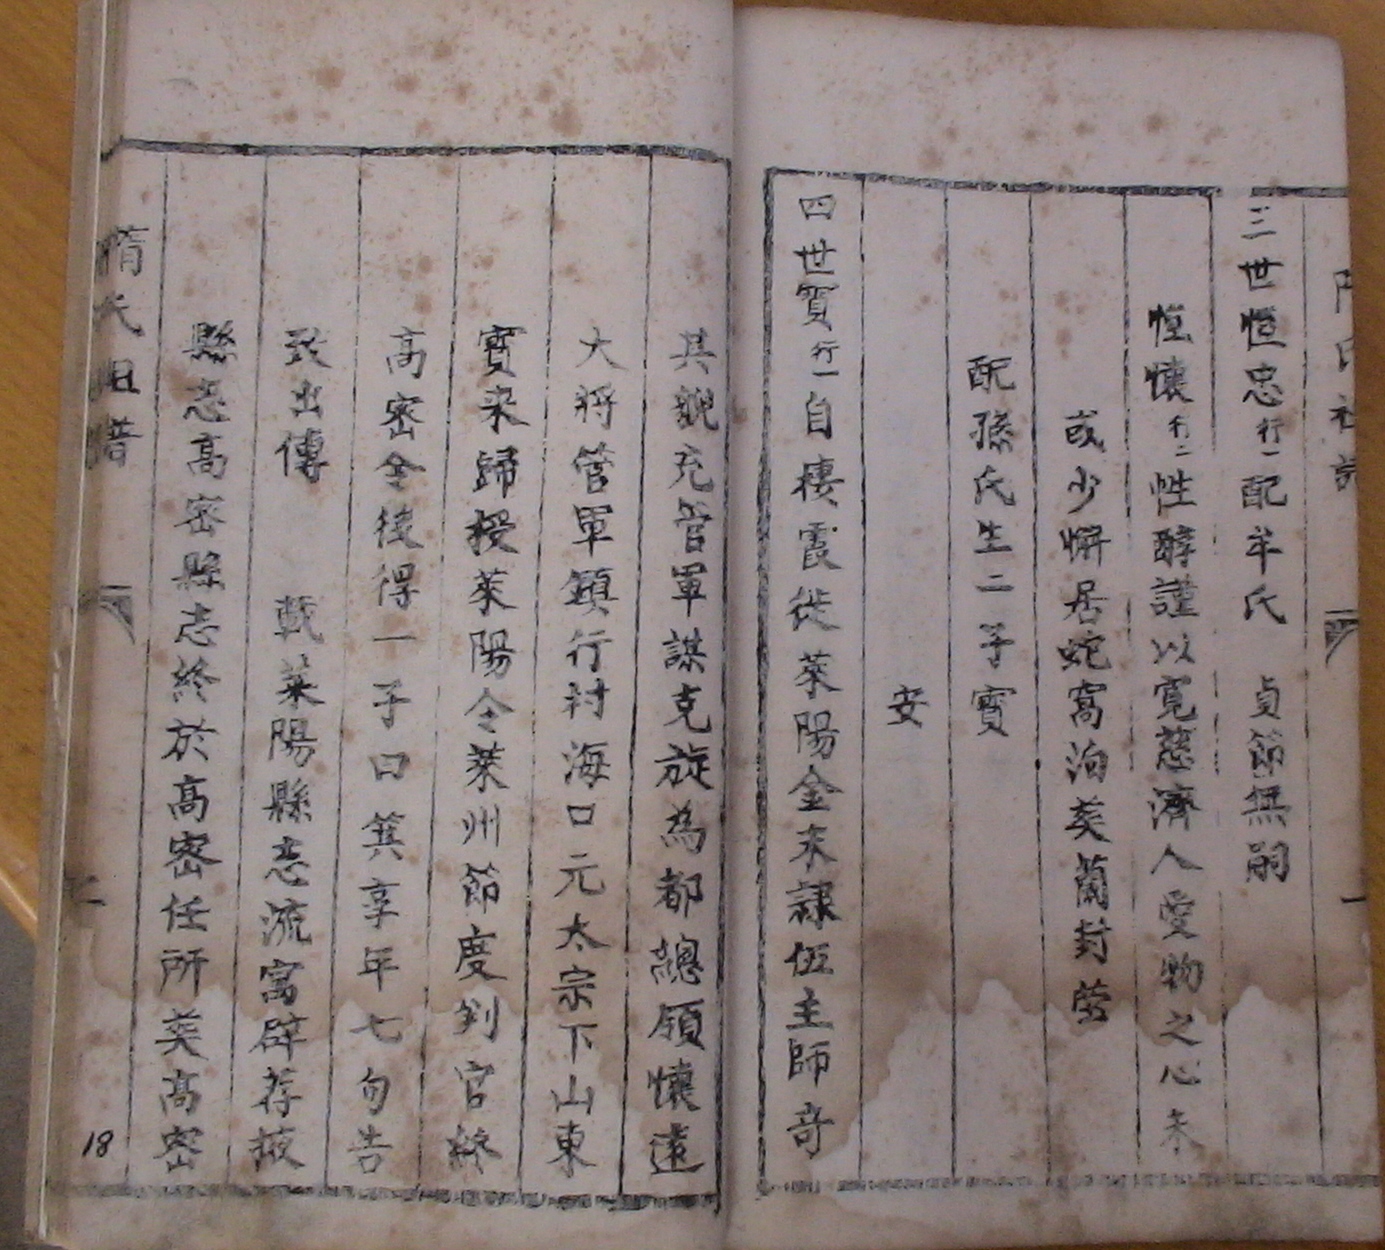 三世恒忠行一配牟氏 貞節無嗣
恒懷行二性醇謹以寬慈濟人愛物之心未
或少懈居蛇窩泊葵蘭封塋
配孫氏生二子寶
安
四世寶行一自棲霞徙萊陽金末隸伍主師奇
其貌充管軍謀克旋為都總領懷遠
大將管軍鎮行村海口元太宗下山東
寶来歸授萊陽令萊州節度到官終
高密令後得一子曰箕享年七旬告
致出傳 載萊陽縣志流寓辟荐掖
縣志高密縣志終於高密任所葵高密
隋氏祖譜
二
18